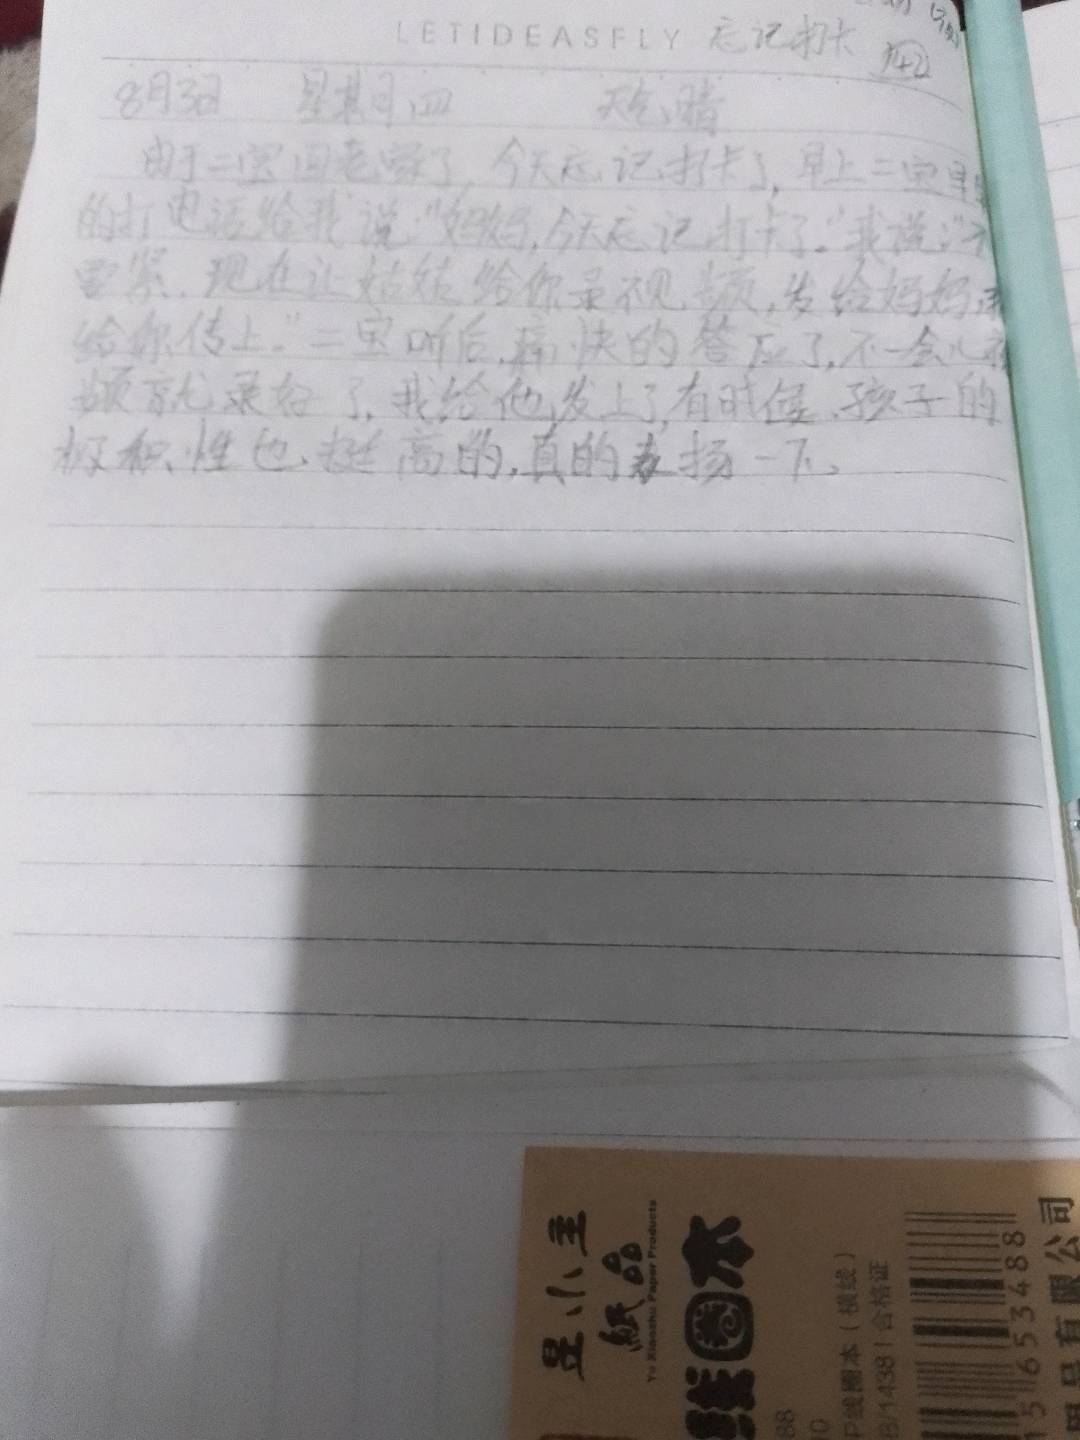 LETIDEASFLY 忘记打卡
142
8月3日 星期四 天气晴
由于二宝回老家了,今天忘记打卡了,早上二宝早早
的打电话给我说:"妈妈,今天忘记打卡了."我说:"不
要紧.现在让姑姑给你录视频,发给妈妈,
给你传上."二宝听后,痛快的答应了,不一会儿视
频就录好了,我给他发上了,有时候,孩子的
极积性也挺高的,真的表扬一下.
昱小主
纸品
Yu Xiaozhu Paper Products
线圈本
P线圈本(横线)
B/1438 | 合格证
15653488
用品有限公司